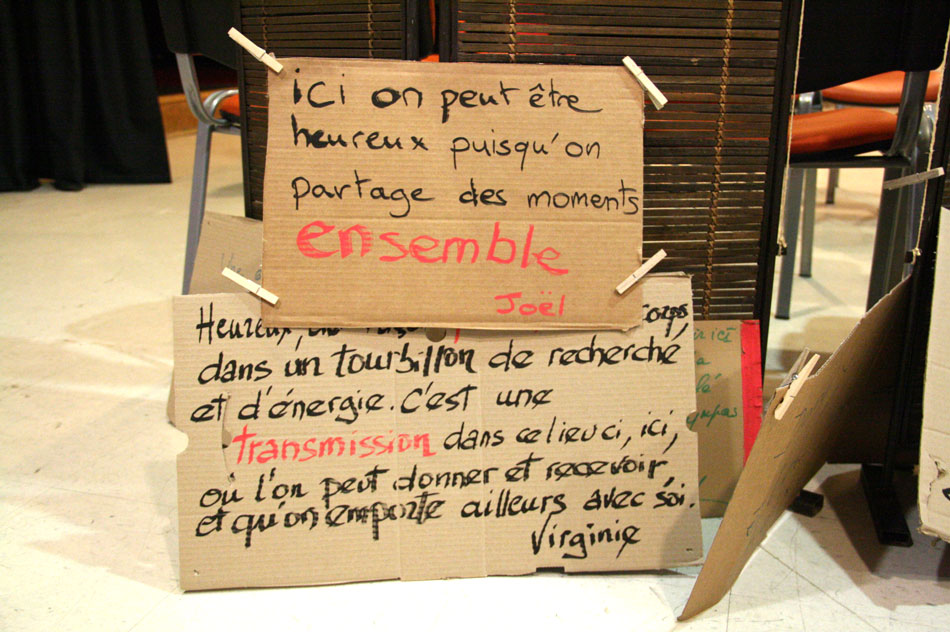 ici on peut être
heureux puisqu'on
partage des moments
ensemble
Joël
Heureux, corps,
dans un tourbillon de recherche
et d'énergie. C'est une
transmission dans ce lieu ci, ici,
où l'on peut donner et recevoir,
et qu'on emporte ailleurs avec soi.
Virginie
ici